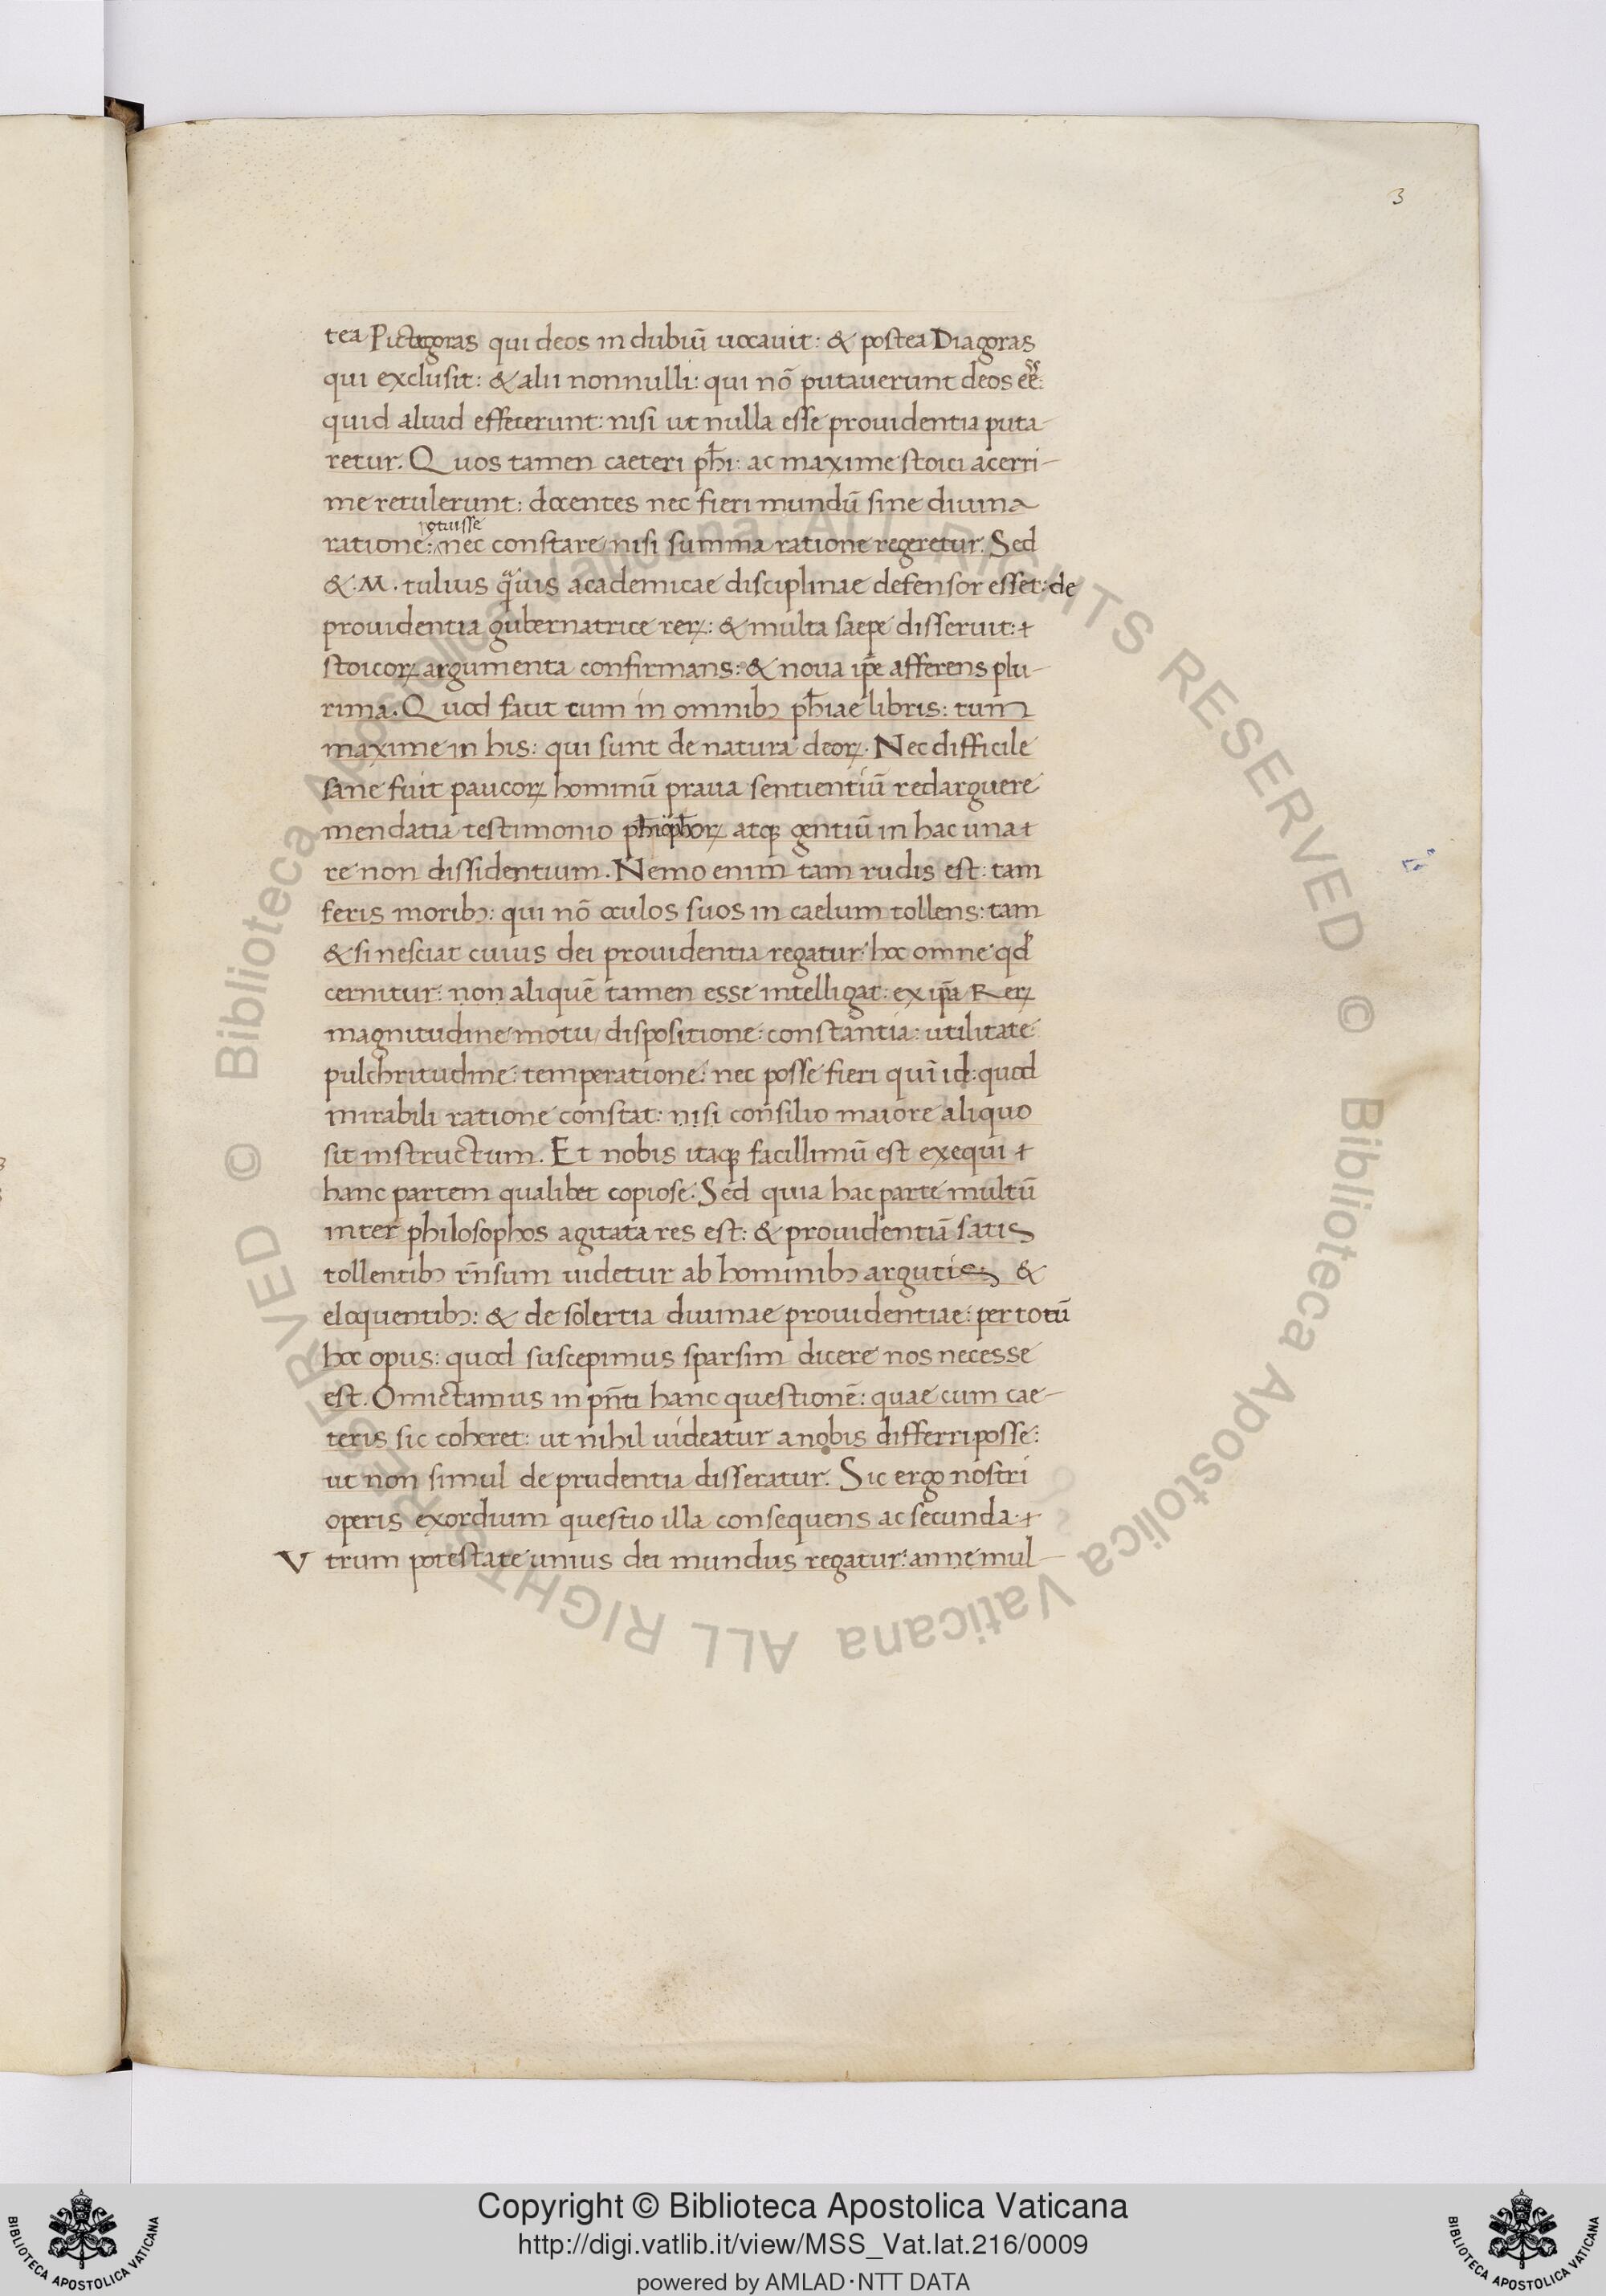 3
tea Pictagoras qui deos in dubiū uocauit: & postea Diagoras
qui exclusit: & alii nonnulli: qui nō putauerunt deos eē:
quid aliud effecerunt: nisi ut nulla esse prouidentia puta-
retur. Quos tamen caeteri phi: ac maxime stoici acerri-
me retulerunt: docentes nec fieri mundū sine diuina
otuisse
ratione: nec constare nisi summa ratione regeretur. Sed
&. M. tulius q̄uis academicae disciplinae defensor esset: de
prouidentia gubernatrice rerꝝ: & multa saepe disseruit:
stoicorꝝ argumenta confirmans: & noua ip̄e afferens plu-
rima. Quod facit cum in omnibꝫ phiae libris: tum
maxime in his: qui sunt de natura deorꝝ. Nec difficile
sane fuit paucorꝝ hominū praua sentientiū redarguere
mendatia testimonio atqꝫ gentiū in hac una
re non dissidentium. Nemo enim tam rudis est: tam
feris moribꝫ: qui nō oculos suos in caelum tollens: tam
& si nesciat cuius dei prouidentia regatur hoc omne qd
cernitur: non aliquē tamen esse intelligat: ex ip̄a Rerꝝ
magnitudine motu dispositione: constantia: utilitate
pulchritudine: temperatione: nec posse fieri quī id: quod
mirabili ratione constat: nisi consilio maiore aliquo
sit instructum. Et nobis itaqꝫ facillimū est exequi
hanc partem qualibet copiose. Sed quia hac parte multū
inter philosophos agitata res est: & prouidentiā satis
tollentibꝫ rn̄sum uidetur ab hominibꝫ argutis &
eloquentibꝫ: & de solertia diuinae prouidentiae: per totū
hoc opus: quod suscepimus sparsim dicere nos necesse
est. Omictamus in pn̄ti hanc questionē: quae cum cae-
teris sic coheret: ut nihil uideatur a nobis differri posse:
ut non simul de prudentia disseratur. Sic ergo nostri
operis exordium questio illa consequens ac secunda
Vtrum potestate unius dei mundus regatur: anne mul-
Copyright © Biblioteca Apostolica Vaticana
http://digi.vatlib.it/view/MSS_Vat.lat.216/0009
powered by AMLAD·NTT DATA
BIBLIOTECA APOSTOLICA VATICANA
BIBLIOTECA APOSTOLICA VATICANA
© Biblioteca Apostolica Vaticana ALL RIGHTS RESERVED © Biblioteca Apostolica Vaticana ALL RIGHTS RESERVED